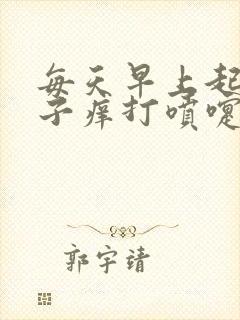 每天早上起
子痒打喷嚏
郭宇靖